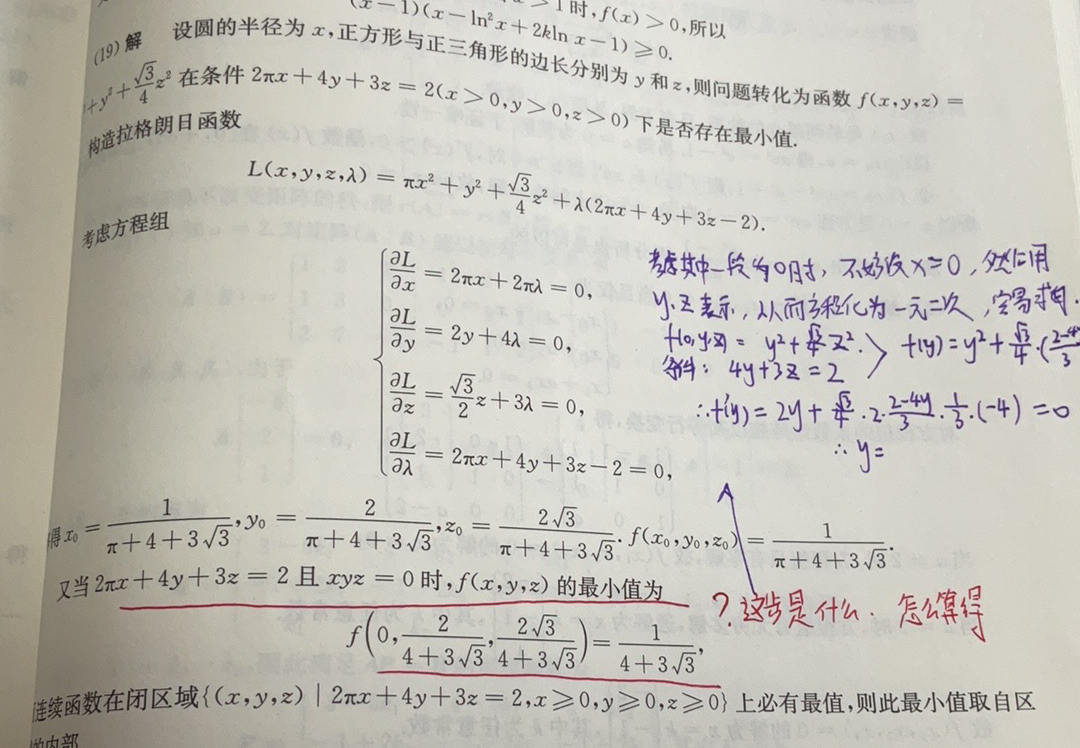 (x−1)(x−ln²x+2kln x−1)⩾0.
>1时,f(x)>0,所以
(19) 解 设圆的半径为 x,正方形与正三角形的边长分别为 y 和 z,则问题转化为函数 f(x,y,z)=
+y²+√3/4 z² 在条件 2πx+4y+3z=2(x>0,y>0,z>0) 下是否存在最小值.
构造拉格朗日函数
L(x,y,z,λ)=πx²+y²+√3/4 z²+λ(2πx+4y+3z−2).
考虑方程组
∂L/∂x=2πx+2πλ=0,
∂L/∂y=2y+4λ=0,
∂L/∂z=√3/2 z+3λ=0,
∂L/∂λ=2πx+4y+3z−2=0,
考虑其中一段为0时, 不妨设 x=0, 然后用
y,z 表示, 从而方程化为一元二次, 容易求得.
f(0,y,z)= y²+√3/4 z². > f(y)=y²+√3/4·(2-4y/3
条件: 4y+3z=2
∴f'(y)=2y+√3/4·2·2-4y/3·1/3·(-4)=0
∴ y=
得 x₀=1/(π+4+3√3),y₀=2/(π+4+3√3),z₀=2√3/(π+4+3√3).f(x₀,y₀,z₀)=1/(π+4+3√3).
又当 2πx+4y+3z=2 且 xyz=0 时,f(x,y,z) 的最小值为
? 这步是什么. 怎么算得
f(0,2/(4+3√3),2√3/(4+3√3))=1/(4+3√3),
连续函数在闭区域{(x,y,z)|2πx+4y+3z=2,x⩾0,y⩾0,z⩾0}上必有最值,则此最小值取自区
的内部